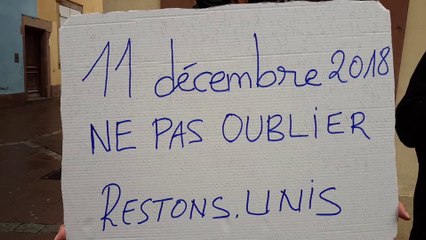 11 décembre 2018
NE PAS OUBLIER
RESTONS.UNIS